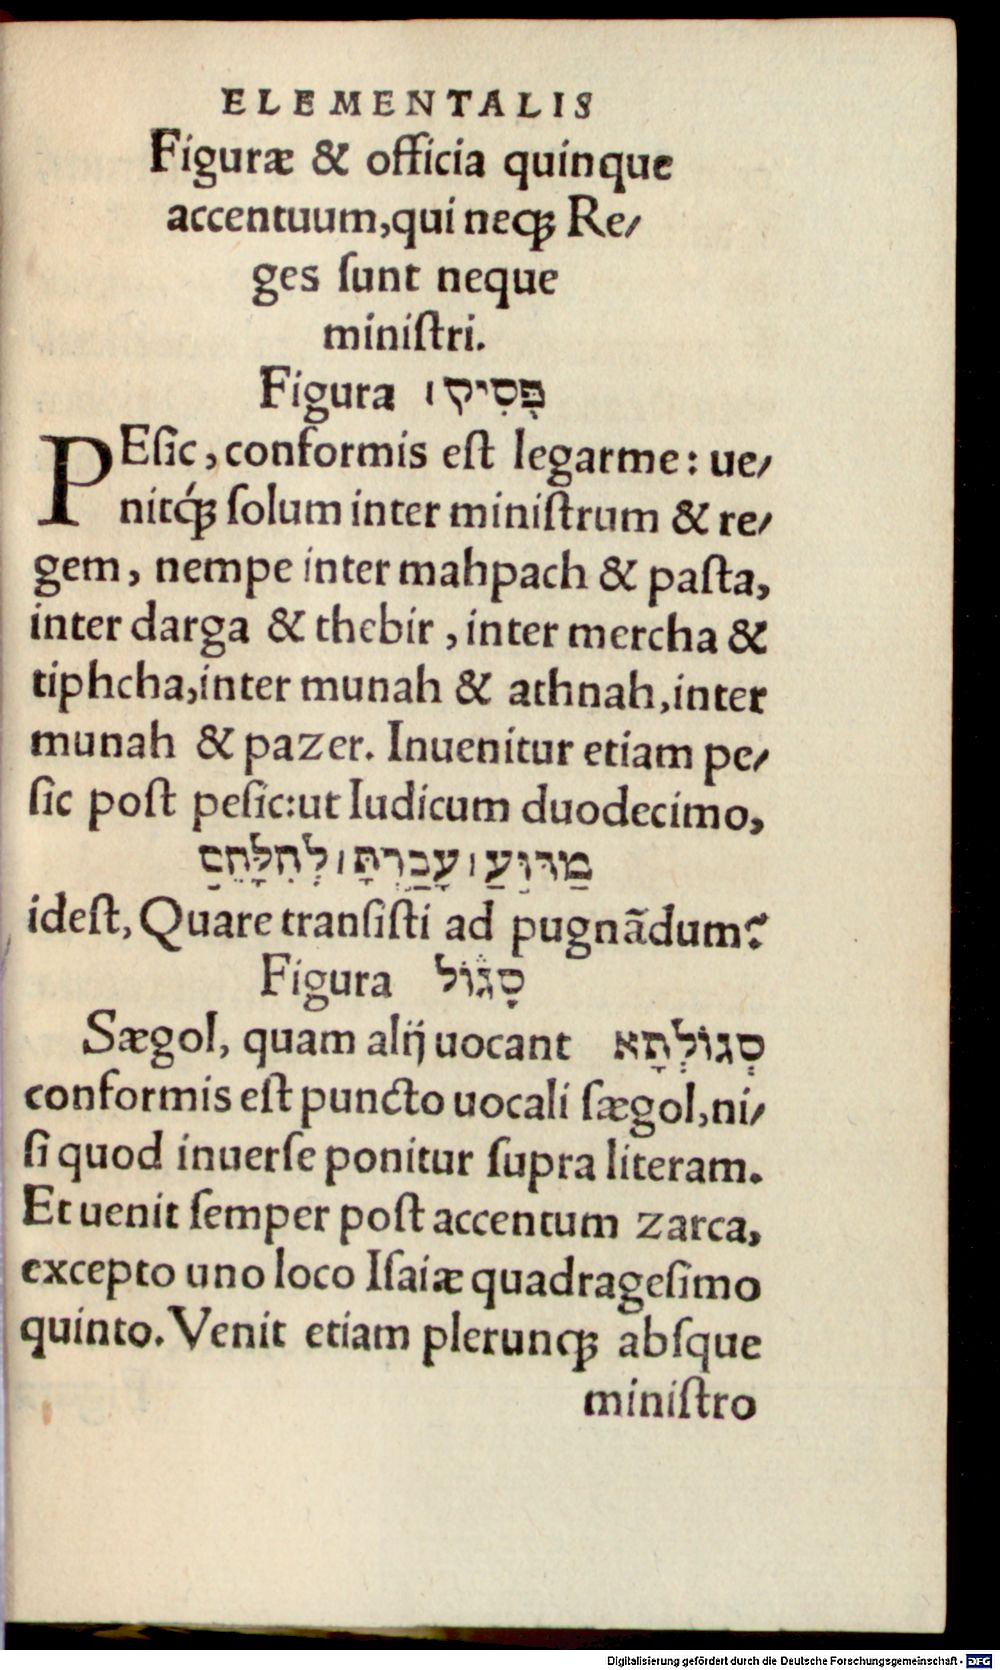 ELEMENTALIS
Figuræ & officia quinque
accentuum,qui neqꝫ Re/
ges ſunt neque
miniſtri.
Figura פְּסִיק ׀
PEſic, conformis eſt legarme: ue/
nitq́ꝫ ſolum inter miniſtrum & re/
gem, nempe inter mahpach & paſta,
inter darga & thebir, inter mercha &
tiphcha,inter munah & athnah,inter
munah & pazer. Inuenitur etiam pe/
ſic poſt peſic:ut Iudicum duodecimo,
מַדּוּעַ ׀ עָבַרְתָּ ׀ לְהִלָּחֵם
ideſt, Quare transiſti ad pugnãdum?
Figura סָגּוֹל
Sægol, quam alij uocant סְגוֹלְתָּא
conformis eſt puncto uocali ſægol,ni/
ſi quod inuerſe ponitur ſupra literam.
Et uenit ſemper poſt accentum zarca,
excepto uno loco Iſaiæ quadrageſimo
quinto. Venit etiam plerunqꝫ abſque
miniſtro
Digitalisierung gefördert durch die Deutsche Forschungsgemeinschaft - DFG